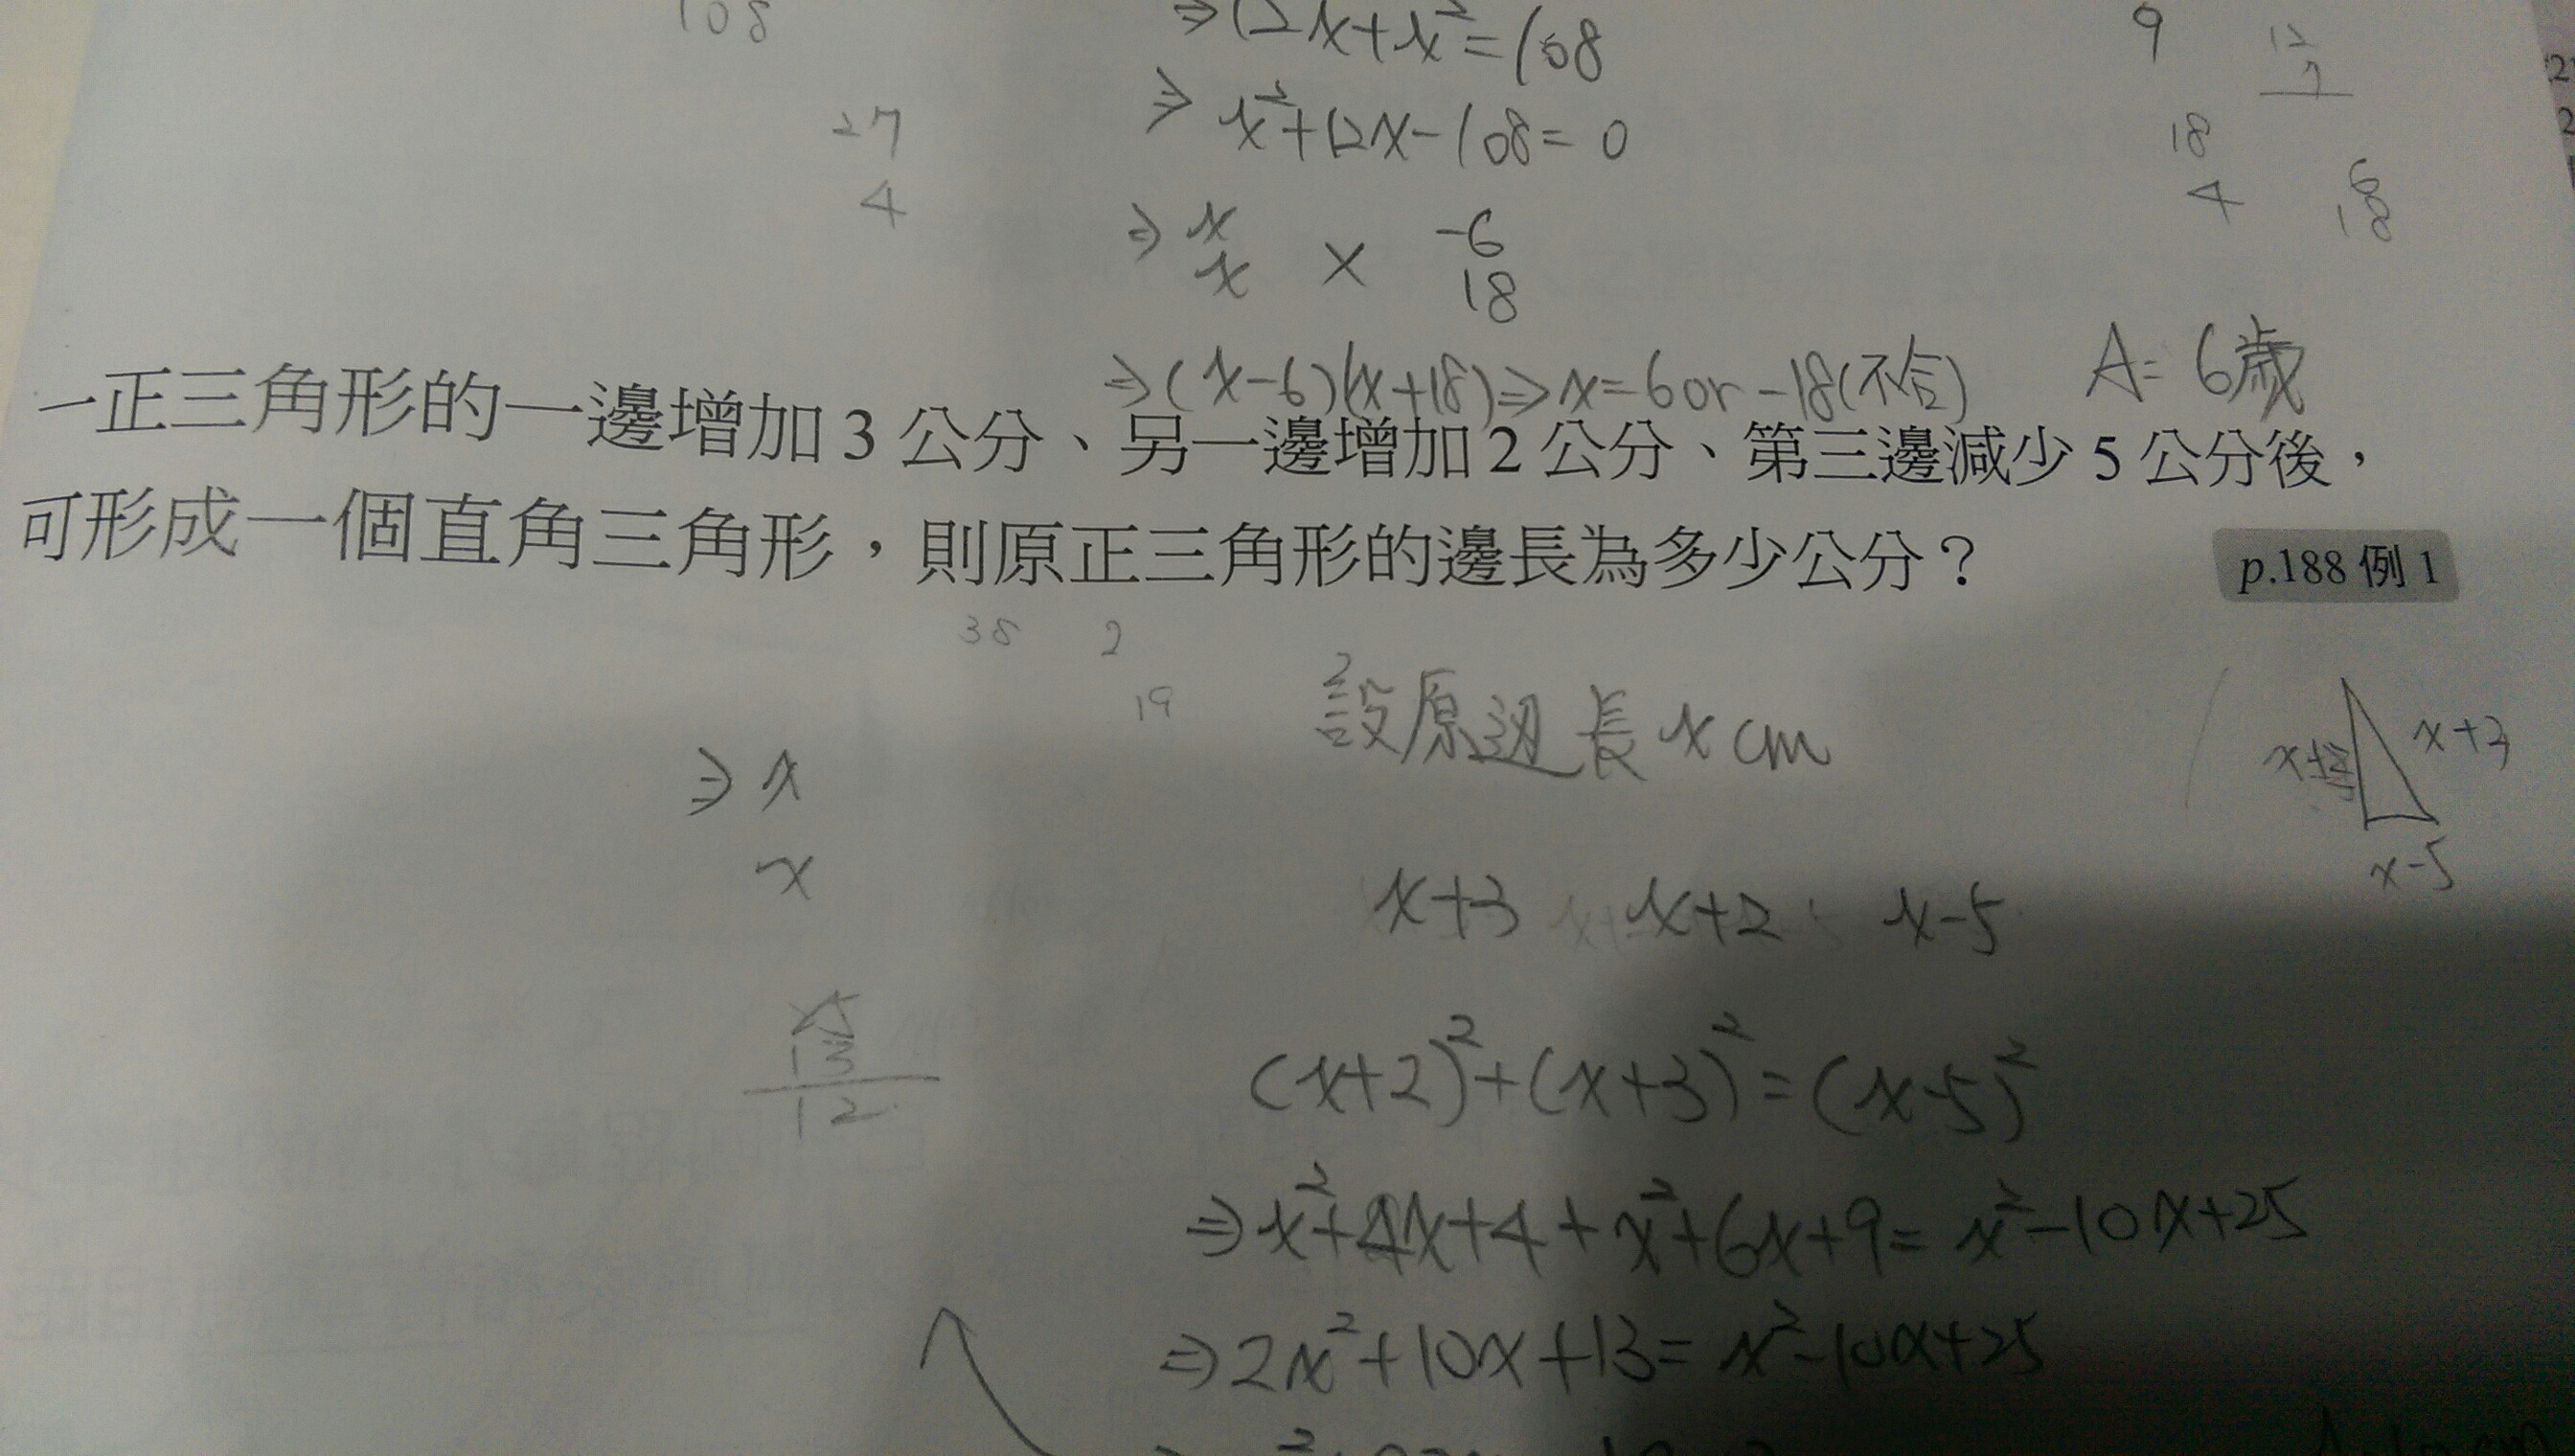 108
⇒12x+x²=108
9
12
7
27
⇒ x²+12x-108=0
18
4
4
6
18
⇒ x
x
×
-6
18
⇒(x-6)(x+18)⇒x=6 or -18(不合)
A=6歲
一正三角形的一邊增加3公分、另一邊增加2公分、第三邊減少5公分後,
可形成一個直角三角形,則原正三角形的邊長為多少公分?
p.188 例 1
38 2
19
設原边長 x cm
x+3
x-5
⇒ x
x
x+3 x+2 x-5
25
13
12
(x+2)²+(x+3)²=(x-5)²
⇒x²+4x+4+x²+6x+9=x²-10x+25
⇒2x²+10x+13=x²-10x+25